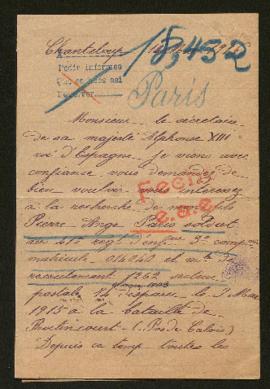 Chanteloup
18,452
Pedir informes
Paris
Monsieur le secrétaire
de sa majesté Alphonse XIII
roi d'Espagne, je viens avec
confiance vous demander de
bien vouloir vous intéresser
à la recherche de mon fils
Pierre Paris soldat
au regt d'inf 3e comp
matricule 014040 et
recrutement 1262 secteur
postale 14 disparu le 9 Mai
1915 à la bataille de
(Pas de Calais)
Depuis ce temp toutes les